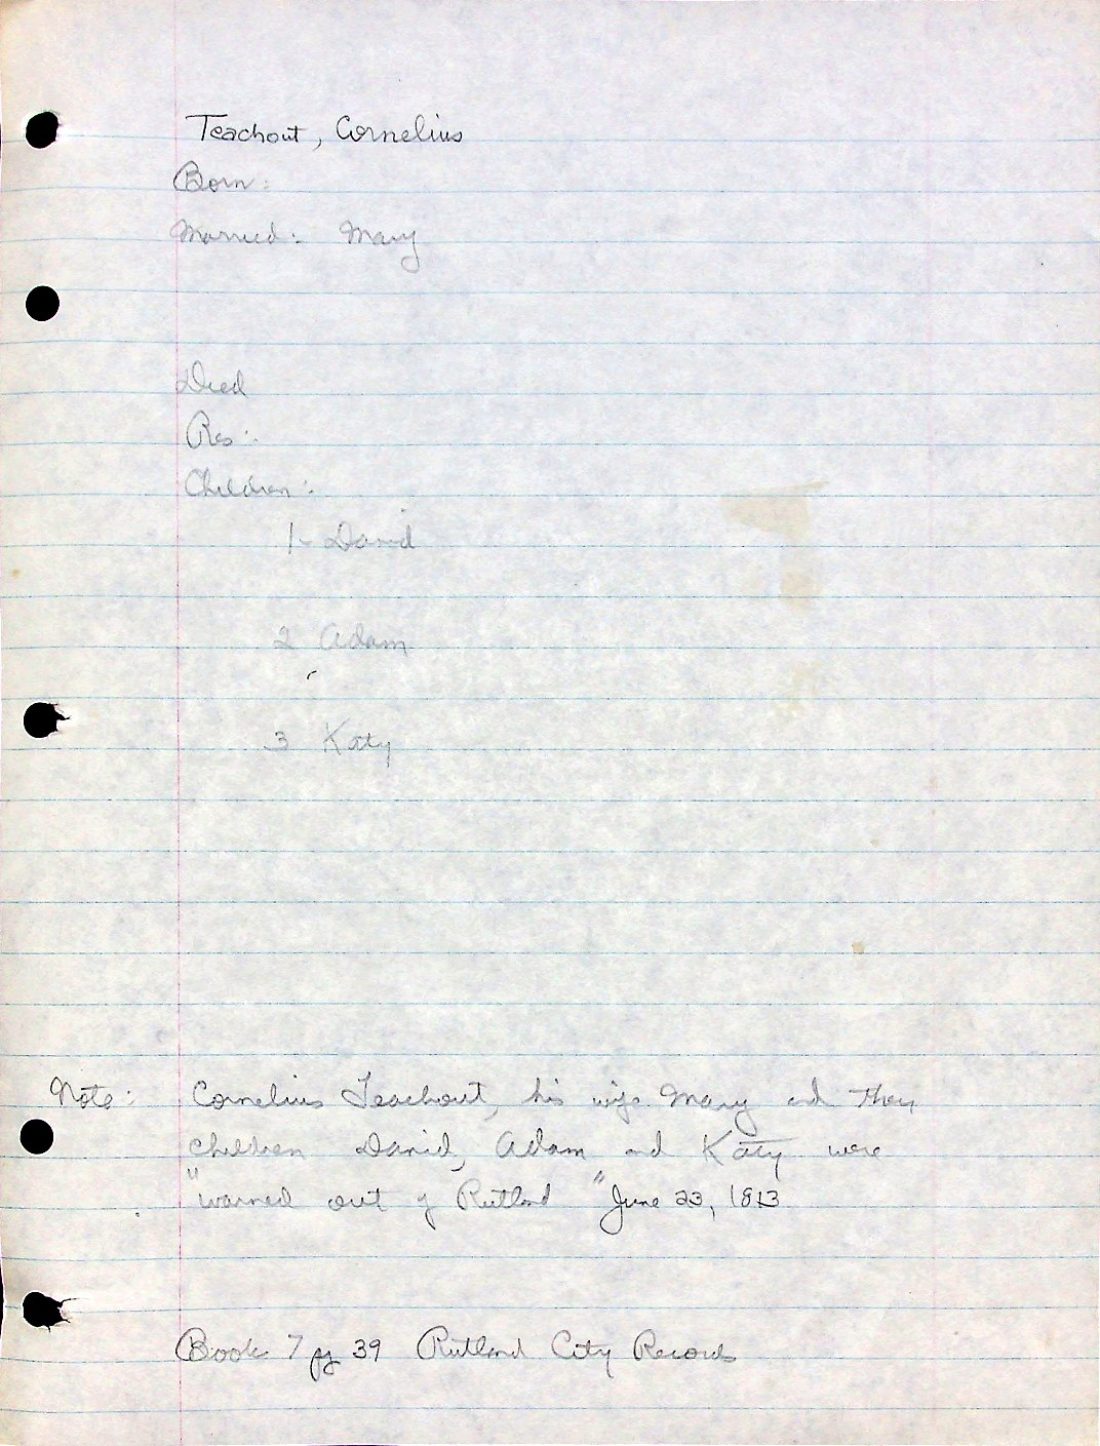 Teachout, Cornelius
Born:
Married: Mary
Died
Res:
Children:
1- David
2 Adam
3 Katy
Note: Cornelius Teachout, his wife Mary and
children David, Adam and Katy were
"warned out of Rutland" June 23, 1813
Book 7 pg 39 Rutland City Records